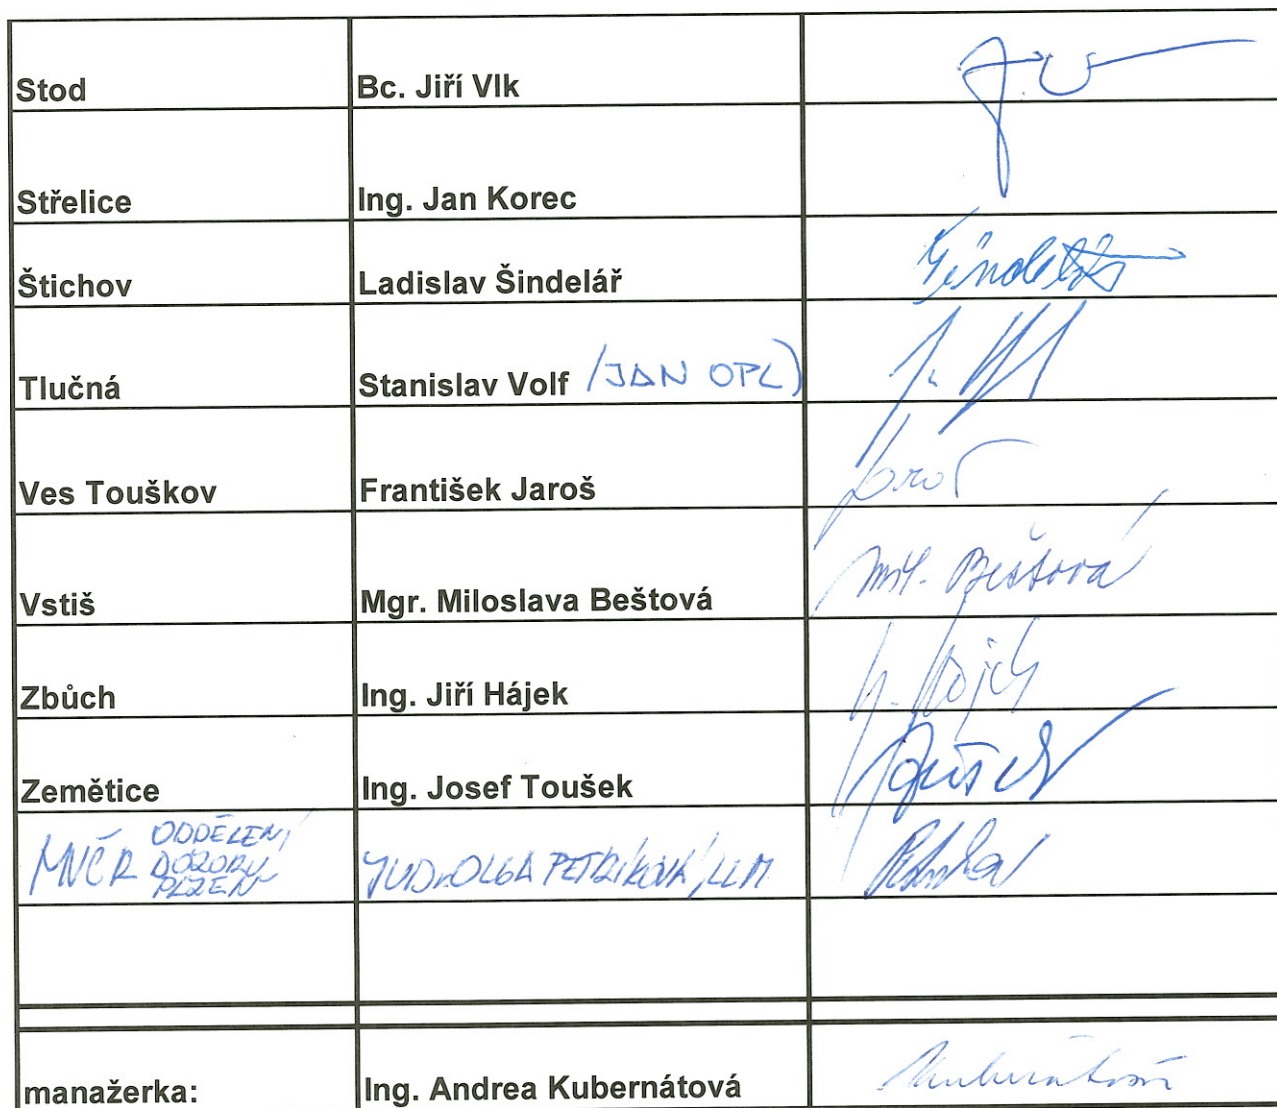 Stod Bc. Jiří Vlk
Střelice Ing. Jan Korec
Štichov Ladislav Šindelář Šindelář
Tlučná Stanislav Volf (JAN OPL)
Ves Touškov František Jaroš Jaroš
Vstiš Mgr. Miloslava Beštová Beštová
Zbůch Ing. Jiří Hájek Hájek
Zemětice Ing. Josef Toušek Toušek
ODDĚLENÍ
MVČR DOZORU JUDr. OLGA PETŘÍKOVÁ, LLM
PLZEŇ
manažerka: Ing. Andrea Kubernátová Kubernátová